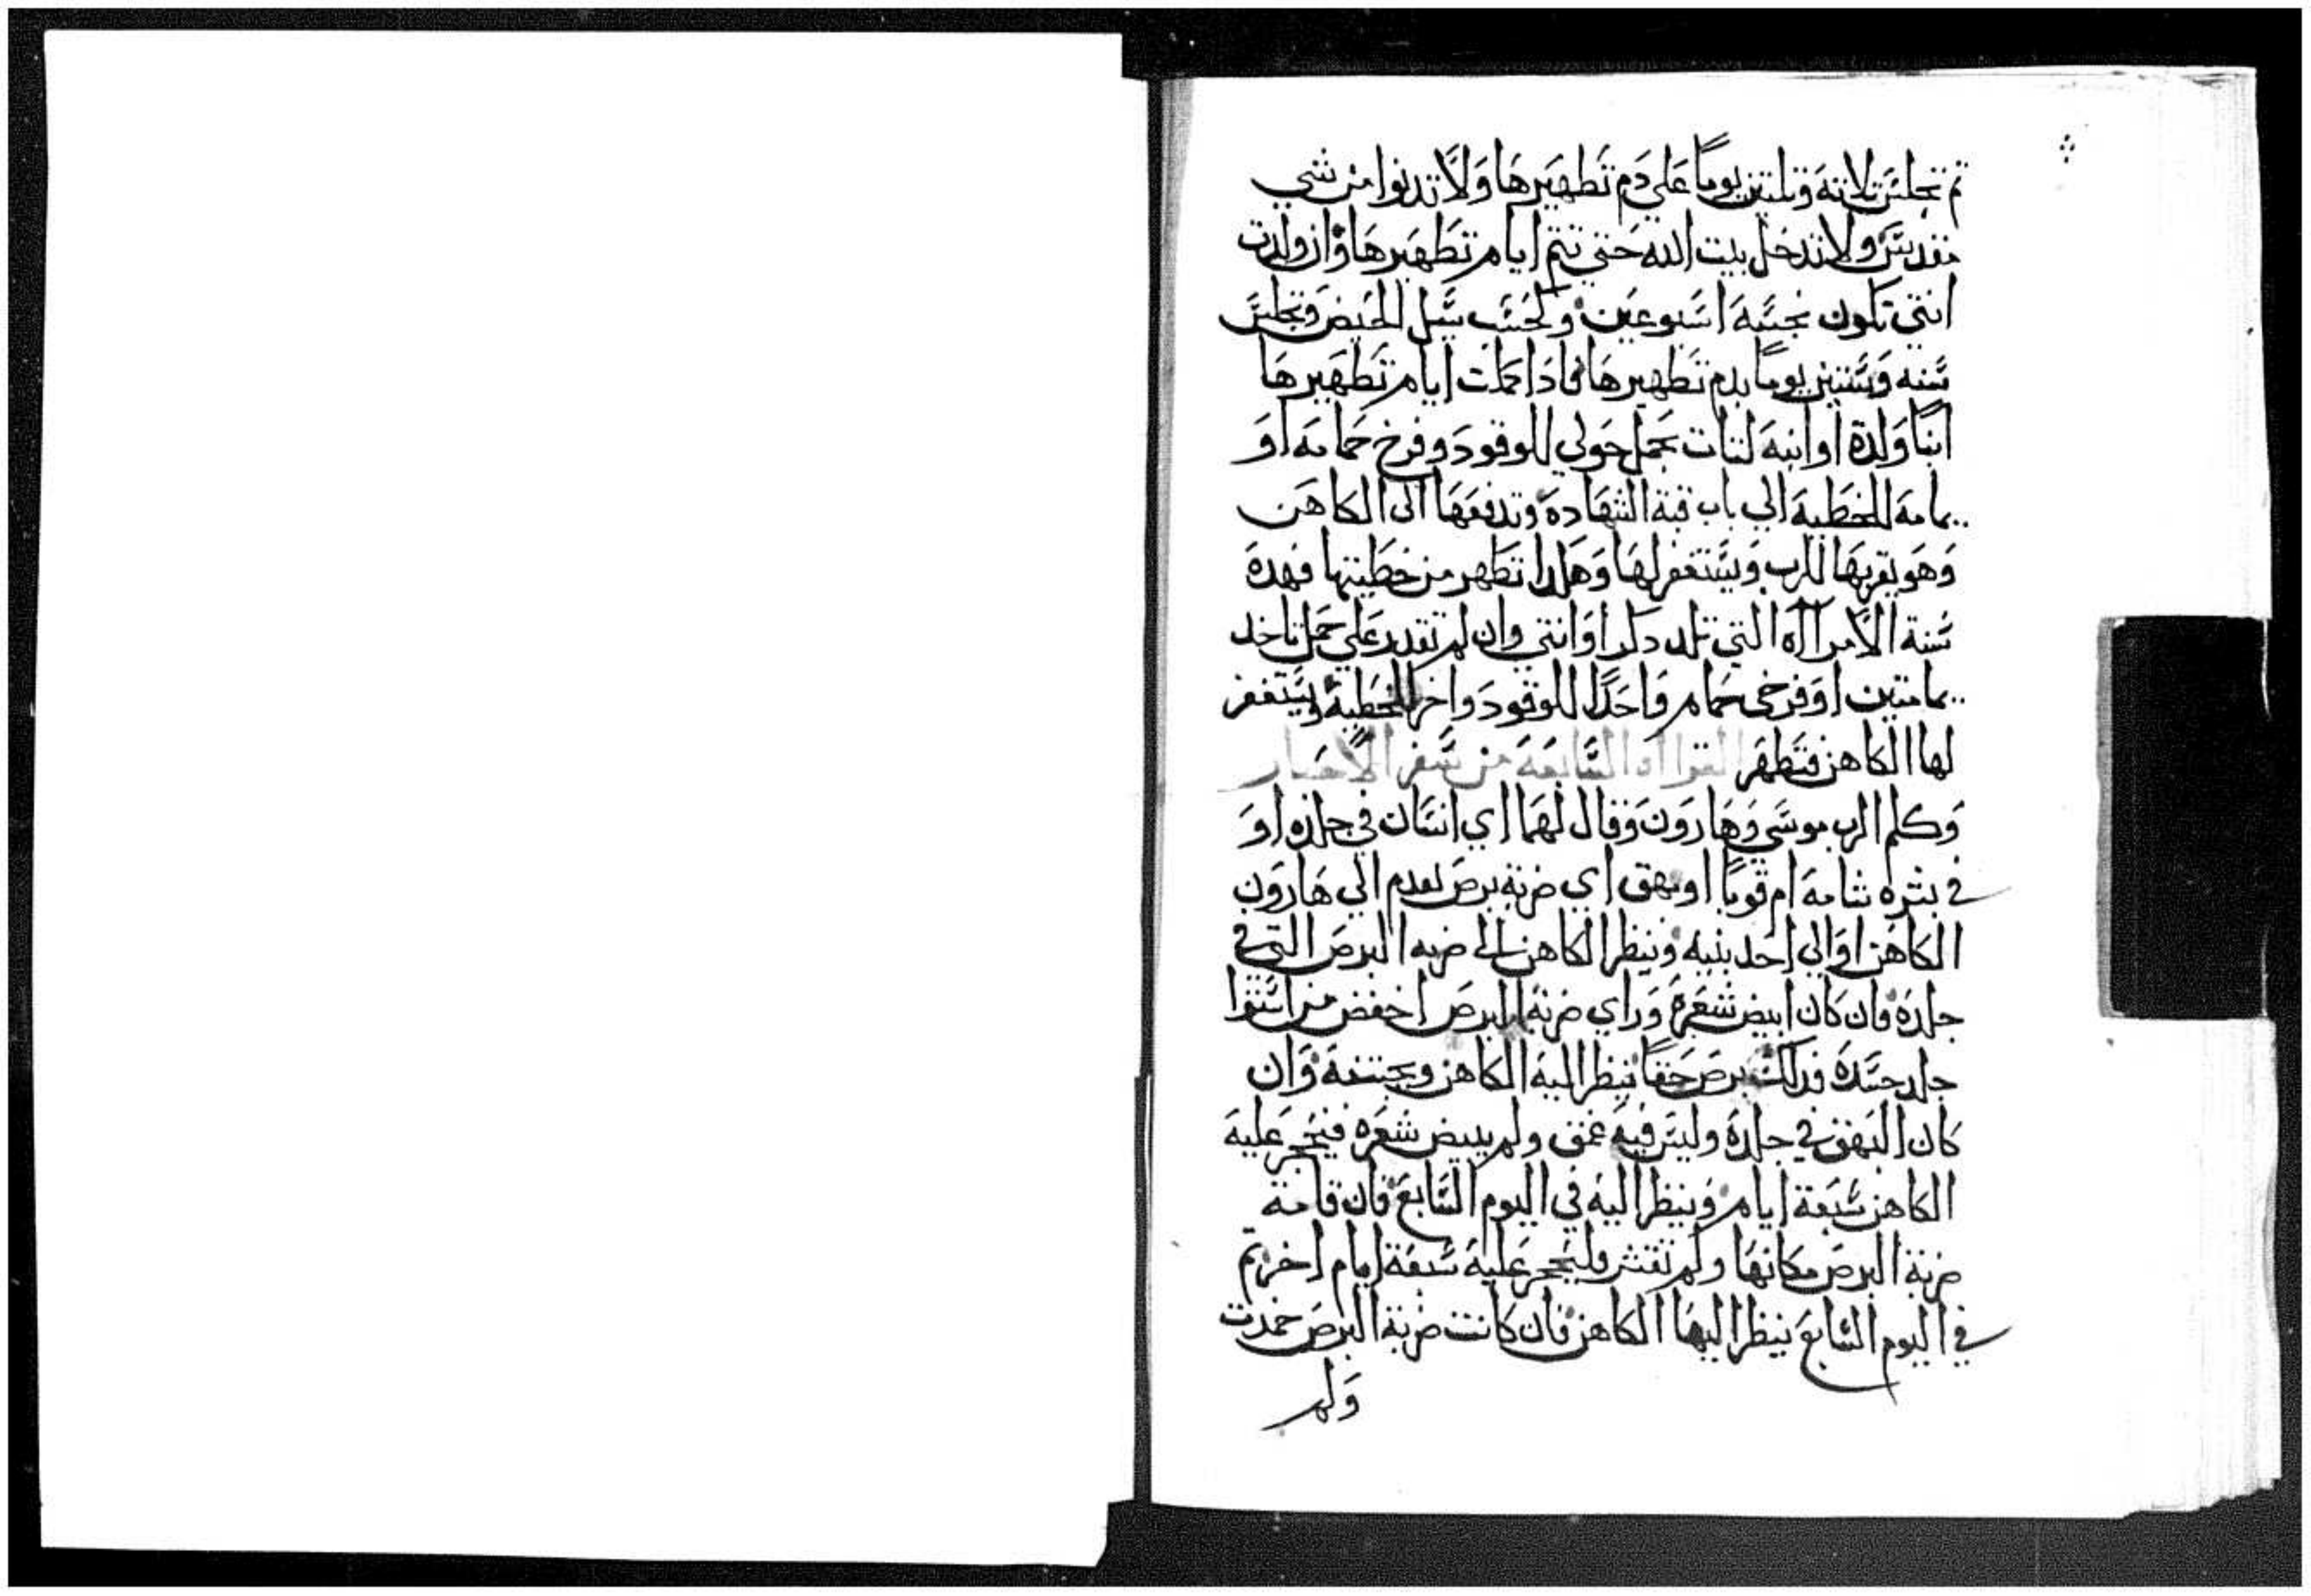 تم تجلس تلاتة وتلتين يوماً علي دم تطهيرها ولا تدنوا من شي
مقدس ولا تدخل بيت الله حتي تتم ايام تطهيرها وان ولدت
انتي تكون نجسه اسبوعين وتحسب سبيل الحيض وتجلس
سته وستين يوماً بدم تطهيرها فاذا كملت ايام تطهيرها
ابناً ولدة او ابنه لتات بحمل حولي للوقود وفرخ حمامه او
يمامه للخطيه الي باب قبة الشهاده وتدفعها الى الكاهن
وهو يقربها للرب ويستغفر لها وهكدا تطهر من خطيتها فهده
سنة الامرااه التي تلد دكراً او انتي وان لم تقدر علي حمل تاخد
يمامتين او فرخي حمام واحداً للوقود واخر للخطيه ويستغفر
لها الكاهن فتطهر القرااه السابعه من سفر الاحبار
وكلم الرب موسي وهارون وقال لهما اي انسان في جلده او
في بشره شامه ام قوبا او بهق اي ضربة برص لقدم الي هارون
الكاهن او الي احد بنيه وينظر الكاهن الى ضربه البرص التي في
جلده فان كان ابيض شعره وراي ضربة البرص اخفض من استوا
جلد جسده فدلك برص حقاً ينظر اليه الكاهن وينجسه وان
كان البهق في جلده وليس فيه عمق ولم يبيض شعره فيحجر عليه
الكاهن سبعة ايام وينظر اليه في اليوم السابع فان قامة
ضربة البرص مكانها ولم تفشر فليحجر عليه سبعة ايام اخر تم
في اليوم السابع ينظر اليها الكاهن فان كانت ضربة البرص خمدت
ولم